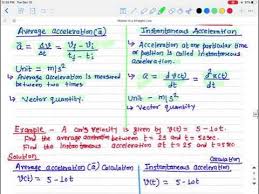 Average acceleration (ā)
ā = ΔV / Δt = Vf - Vi / tf - ti
Unit = m/s²
→ Average acceleration is measured between two points
→ Vector quantity
Instantaneous Acceleration
→ Acceleration at any particular time or position is called instantaneous acceleration.
→ a = d v(t) / dt = d²x(t) / dt²
→ Unit = m/s²
→ Vector quantity
Example - A car's velocity is given by v(t) = 5 - 10t
Find the average acceleration between t = 25 and t = 50sec.
Find the instantaneous acceleration at t = 25 and t = 45
Solution
Average acceleration (ā) Calculation
v(t) = 5 - 10t
Instantaneous acceleration Calculation
v(t) = 5 - 10t